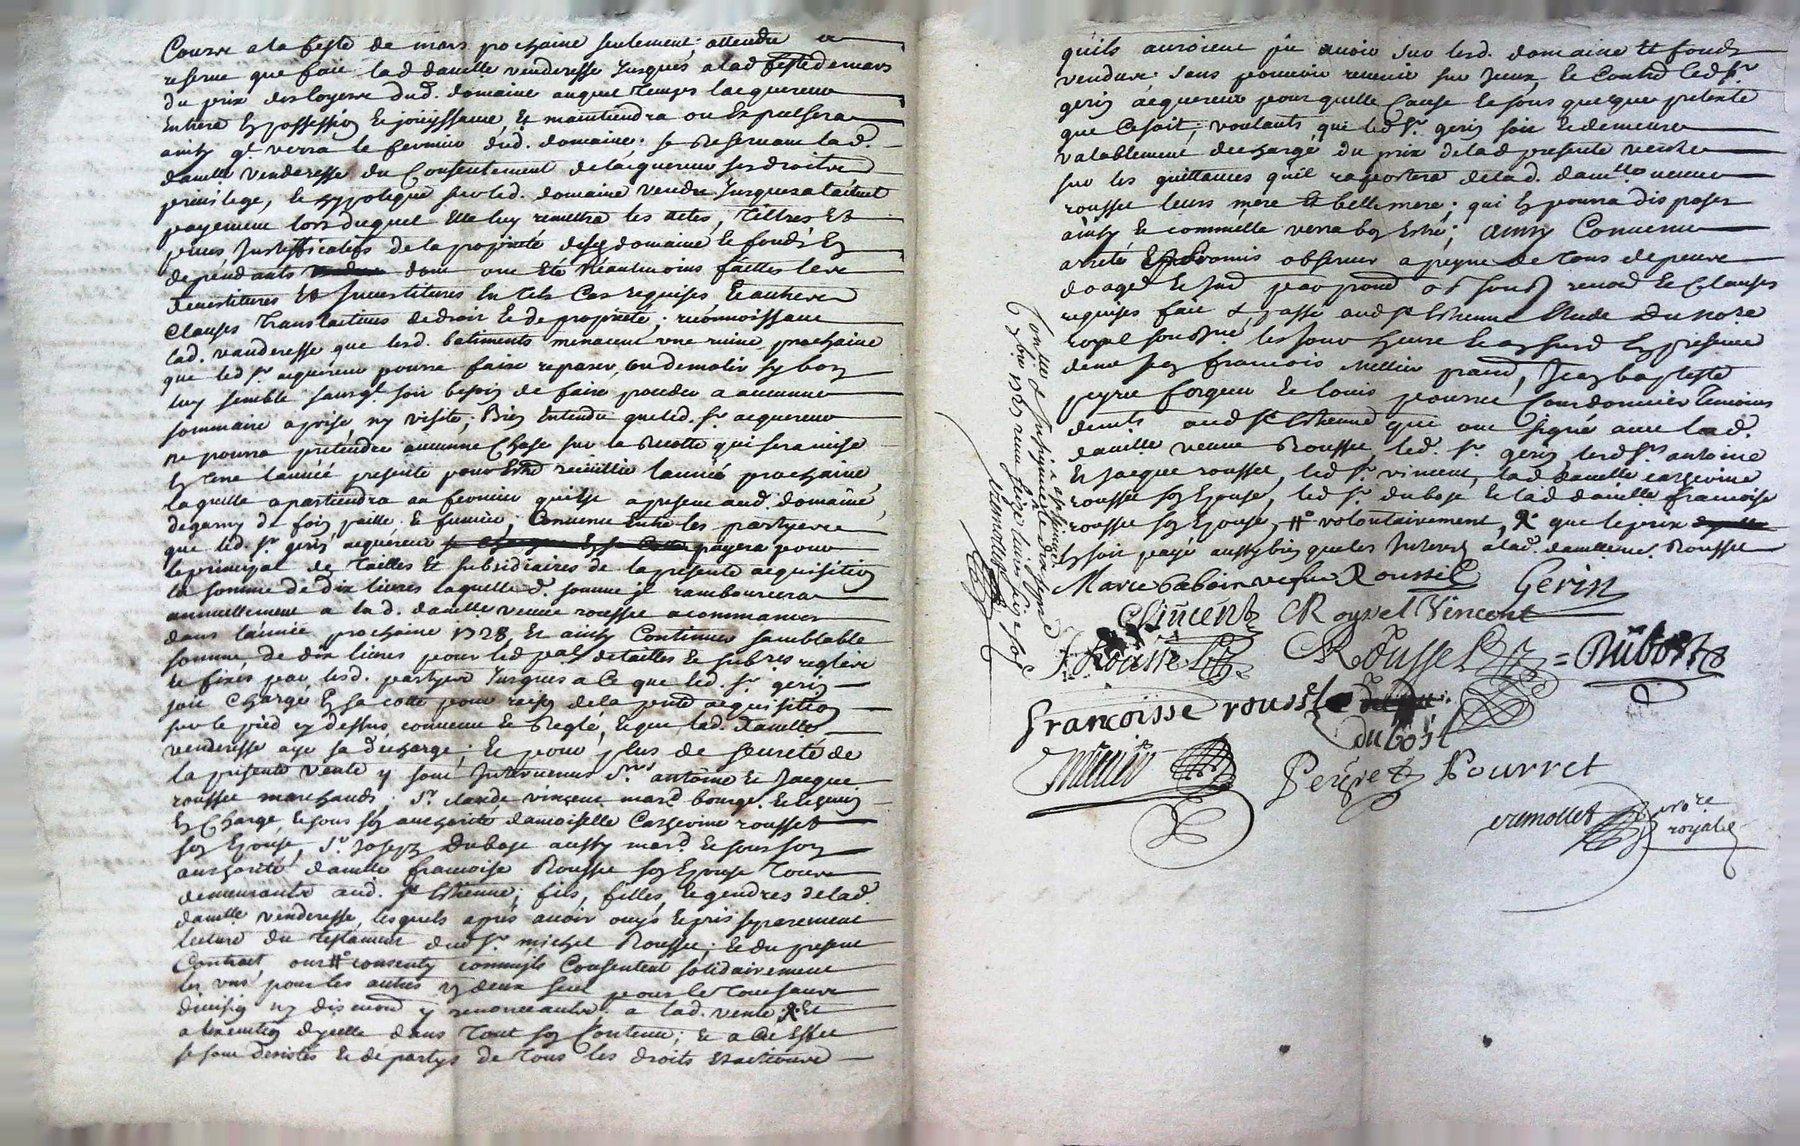 Courir a la feste de mars prochaine seulement; attendu
reserve que fait lad. damelle venderesse jusques a lad. feste de mars
du prix des loyers dud. domaine auquel temps lacquereur
entrera en possession et jouyssance, et maintiendra ou expulsera
ainsy ql. verra le fermier dud. domaine. se reservant lad.
damelle venderesse du consentement de lacquereur ses droits
privilege, et hypoteque sur led. domaine vendu jusques a lactuel
payement lors duquel elle luy remettra les actes, tiltres et
pieces justifficatifs de la proprieté desd. domaine et fonds en
dependants dont ont été néantmoins faittes les
devestitures et investitures en tels cas requises et autres
clauses translatives de droit et de proprieté; reconnoissant
lad. vanderesse que lesd. batiments menacent une ruine prochaine
que led. sr. acquereur pourra faire reparer, ou demolir sy bon
luy semble sans ql. soit besoin de faire proceder a aucunne
sommaire aprise, ny visite; bien entendu que led. sr. acquereur
ne pourra pretendre aucunne chose sur la recolte qui sera mise
en terre lannée presente pour estre recuillie lannée prochaine
laquelle apartiendra au fermier qui est a present aud. domaine,
degarny de foin paille et fumier; convenu entre les partyes
que led. sr. gerin acquereur payera pour
le principal de tailles et subsidiaires de la presente acquisition
la somme de dix livres laquelle d. somme il rambourcera
annuellement a lad. damelle veuve roussel a commancer
dans lannée prochaine 1728, et ainsy continuer semblable
somme de dix livres pour led. pal. de tailles et subres reglée
et fixée par lesd. partyes jusques a ce que led. sr. gerin
soit chargé en sa cotte pour raison de la pnte acquisition
sur le pied cy dessus convenu et reglé, et que lad. damelle
venderesse aye sa decharge; et pour plus de seureté de
la presente vente y sont intervenus srs. antoine et jacque
roussel marchands, sr. claude vincent marc. bourg.
en charge, et sous son authorité damoiselle catherine roussel
son epouse, sr. joseph dubost aussy marc. et sous son
authorité damelle francoise roussel son epouse tous
demeurants aud. st. etienne; fils, filles, et gendres de lad.
damelle venderesse, lesquels aprés avoir ouy et pris separement
lecture du testament dud. sr. michel roussel; et du present
contract, ont consenty comme ils consentent solidairement
les uns pour les autres un deux seul pour le tout sans
division ny discution y renonceants a lad. vente et
a lexecution dycelle dans tout son contenu; et a cet effet
se sont desistés et departys de tous les droits et actions
quils auroient pu avoir sur lesd. domaine et fonds
vendus. sans pouvoir revenir sur yceux, et contre led. sr.
gerin acquereur pour quelle cause et sous quelque pretexte
que ce soit; voulants, que led. sr. gerin soit et demeure
valablement dechargé du prix de lad. presente vente
sur les quittances quil raportera de lad. damlle. veuve
roussel leurs mere et belle mere; qui en pourra disposer
ainsy et commelle verra bon estre; ainsy convenu
arreté et promis observer a peyne de tous depens
domages et
requises fait et passé aud. st. etienne etude du nore.
royal sousné. les jour heure
françois mellier jean baptiste
peyre forgeur et louis pourret cordonnier temoins
demts. aud. st. etienne qui ont signé avec lad.
damelle. veuve roussel, led. sr. gerin, lesd. srs. antoine
et jacque roussel, led. sr. vincent, lad. damelle catherine
roussel son epouse, led. sr. dubost et lad. damelle francoise
roussel son epouse, volontairement, que le prix
en soit payé aussy bien que les interets a lad. damelle. ve. roussel
Gerin
Vincent C Roussel Vincent
J. Rousset Rousset Dubost
francoisse roussel
dubost
Mellier Peyre L Pourret
cremollet nore
royal